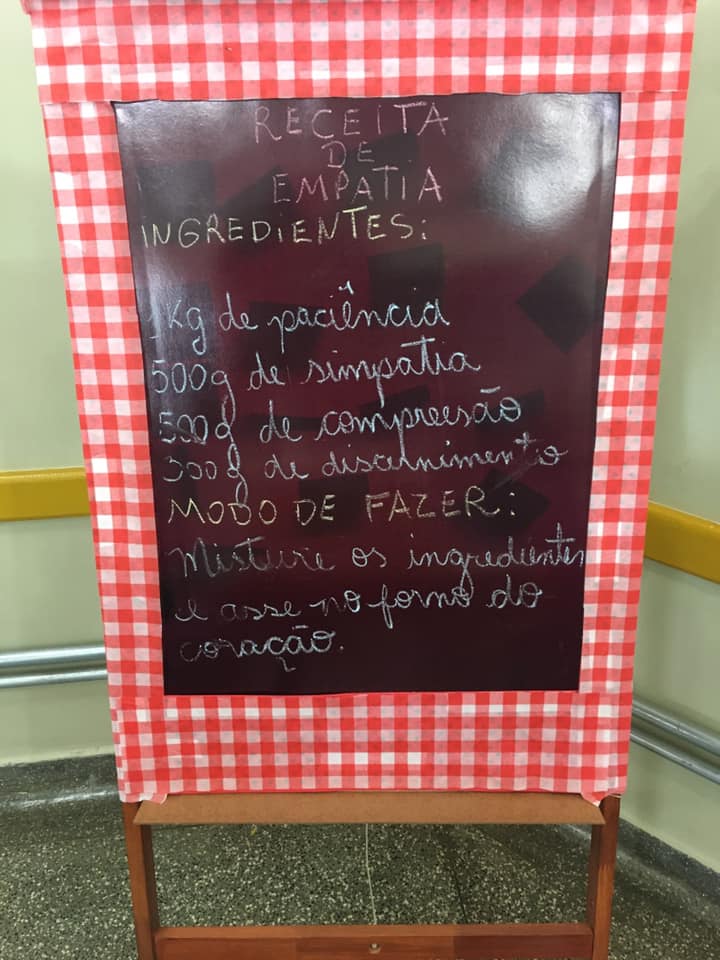 RECEITA
DE
EMPATIA
INGREDIENTES:
1Kg de paciência
500g de simpatia
500g de compreesão
300g de discelnimento
MODO DE FAZER:
Misture os ingredientes
e asse no forno do
coração.